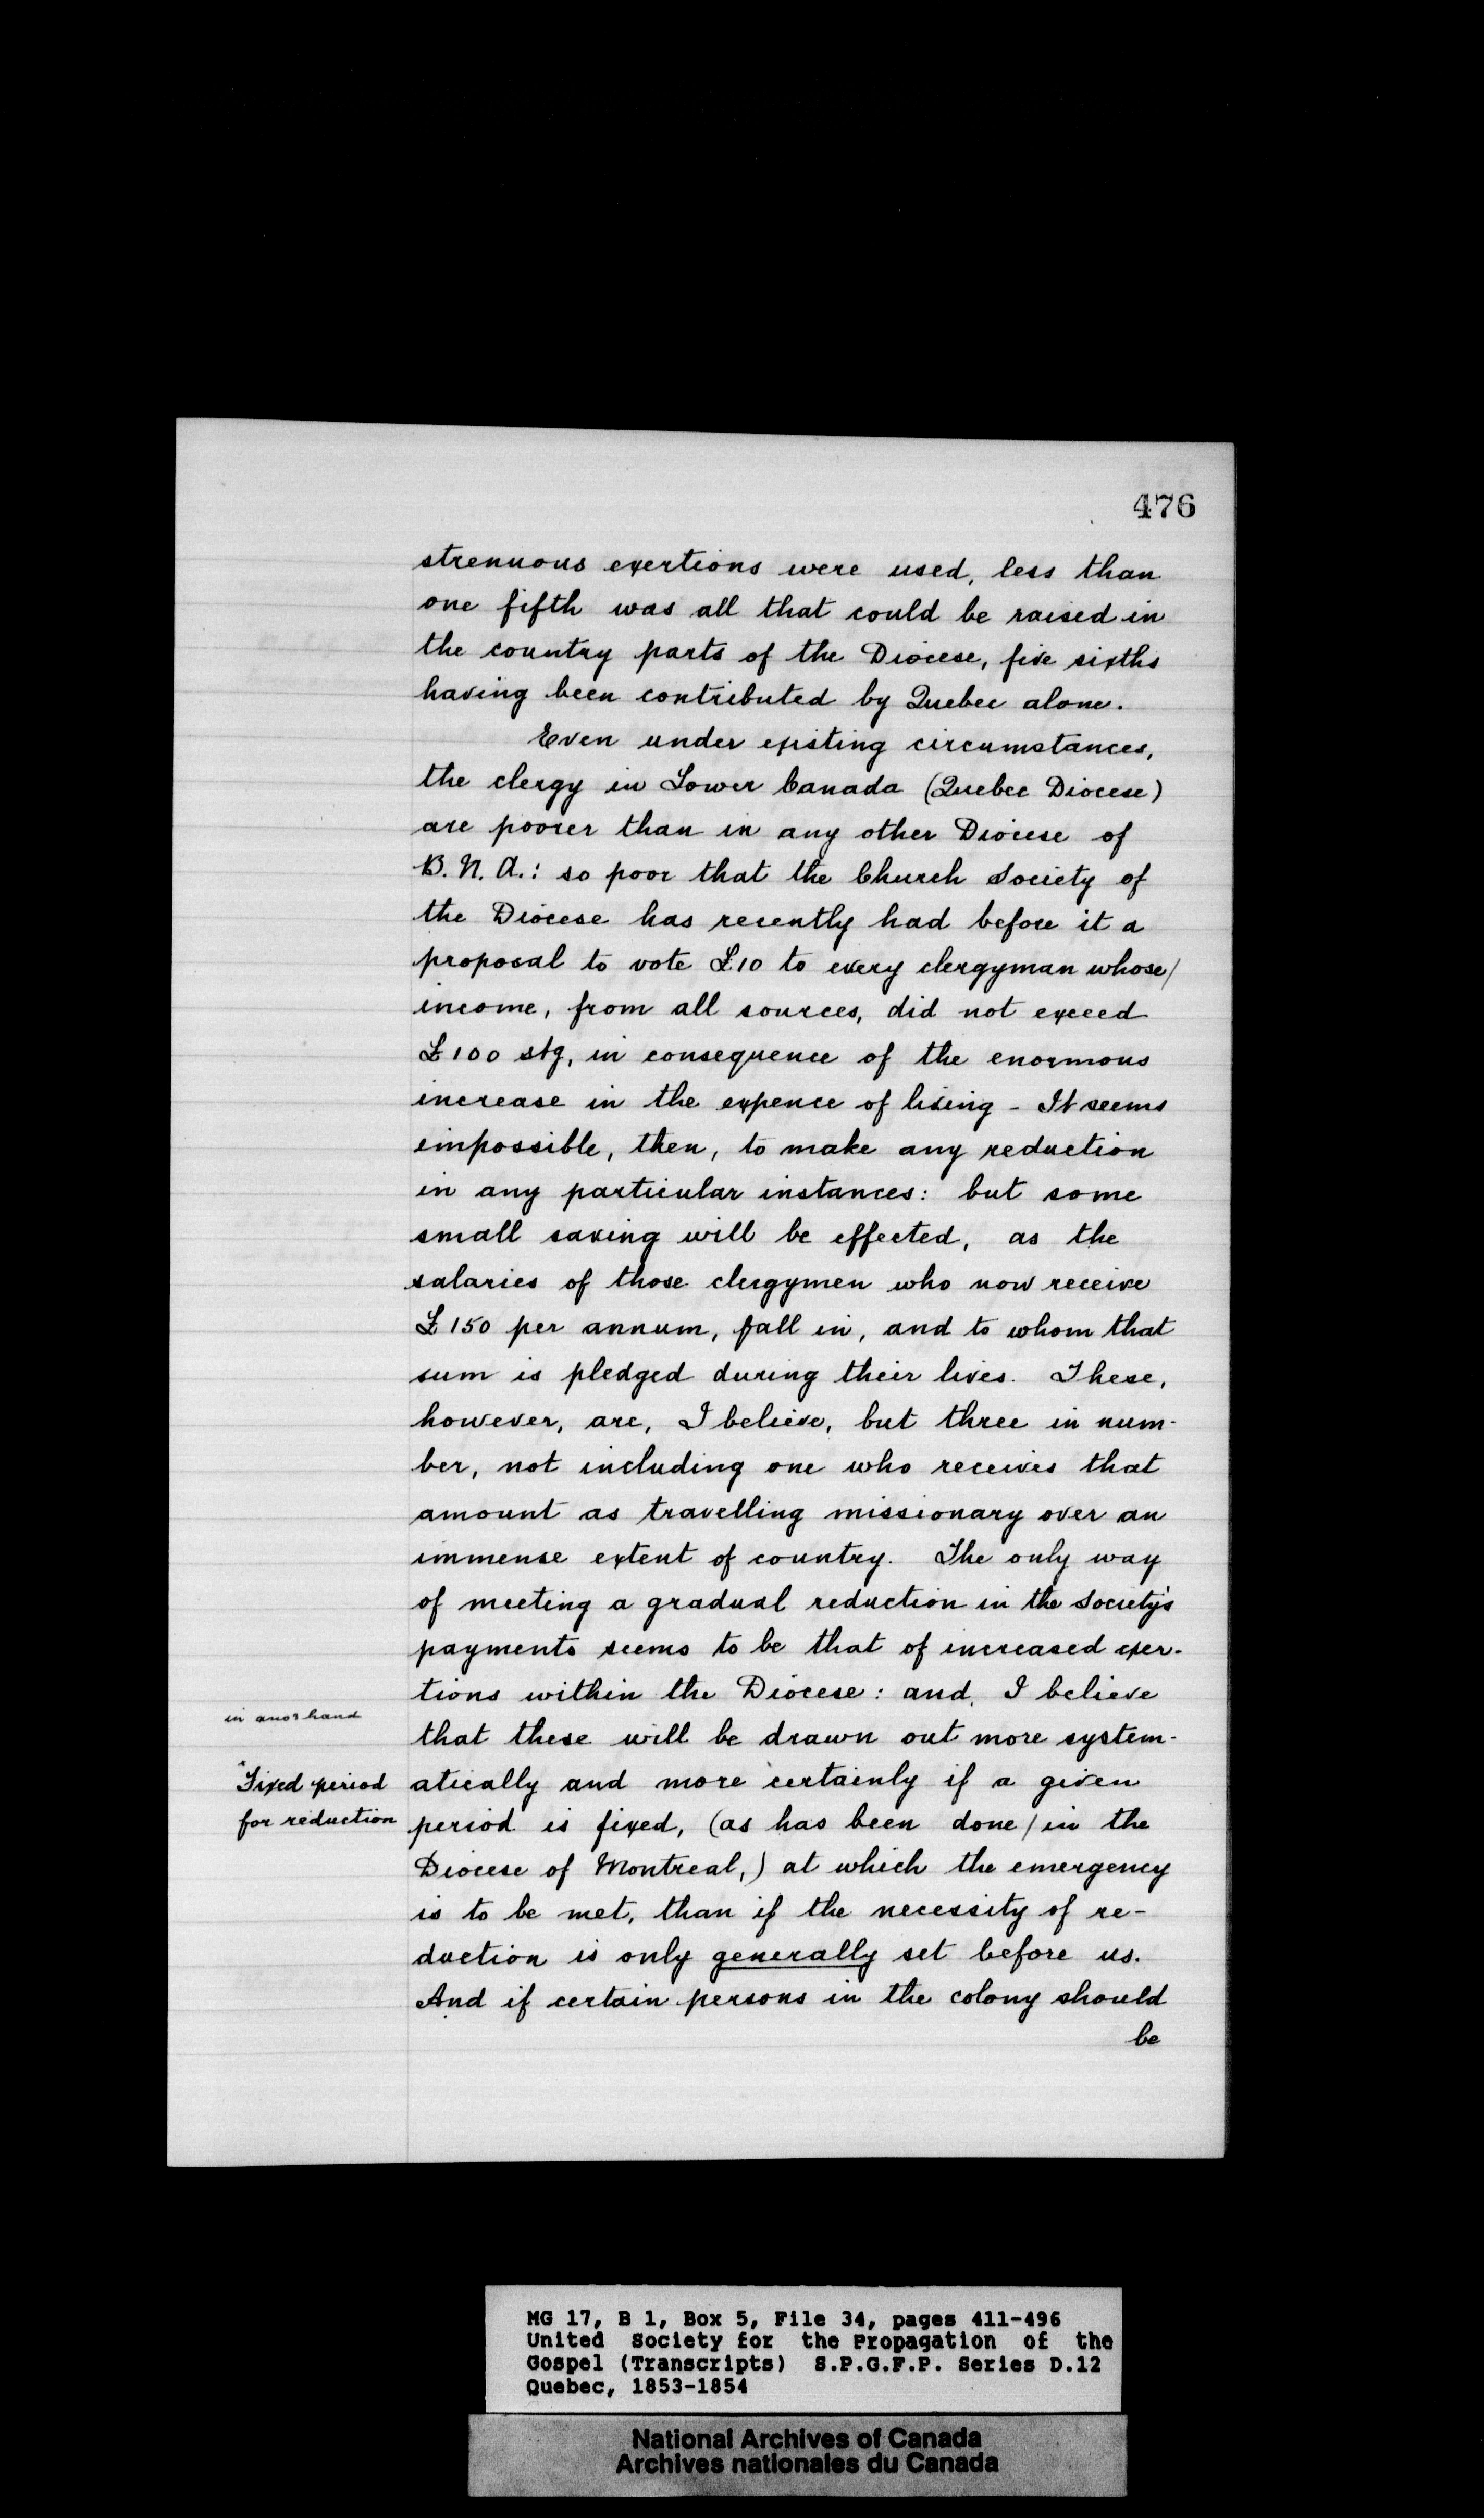 476
strenuous exertions were used, less than
one fifth was all that could be raised in
the country parts of the Diocese, five sixths
having been contributed by Quebec alone.
Even under existing circumstances,
the clergy in Lower Canada (Quebec Diocese)
are poorer than in any other Diocese of
B. N. A.: so poor that the Church Society of
the Diocese has recently had before it a
proposal to vote £10 to every clergyman whose/
income, from all sources, did not exceed
£100 stg, in consequence of the enormous
increase in the expence of living - It seems
impossible, then, to make any reduction
in any particular instances: but some
small saving will be effected, as the
salaries of those clergymen who now receive
£150 per annum, fall in, and to whom that
sum is pledged during their lives. These,
however, are, I believe, but three in num-
ber, not including one who receives that
amount as travelling missionary over an
immense extent of country. The only way
of meeting a gradual reduction in the Society's
payments seems to be that of increased exer-
tions within the Diocese: and, I believe
in anor hand
that these will be drawn out more system-
"Fixed period
atically and more certainly if a given
for reduction
period is fixed, (as has been done/in the
Diocese of Montreal,) at which the emergency
is to be met, than if the necessity of re-
duction is only generally set before us.
And if certain persons in the colony should
be
MG 17, B 1, Box 5, File 34, pages 411-496
United Society for the Propagation of the
Gospel (Transcripts) S.P.G.F.P. Series D.12
Quebec, 1853-1854
National Archives of Canada
Archives nationales du Canada